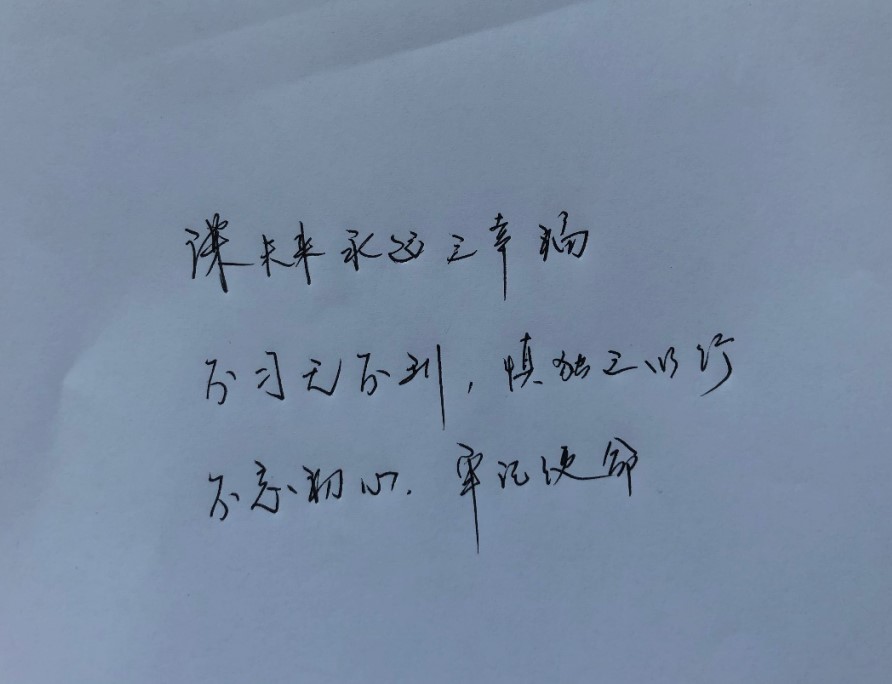 谋未来永远之幸福
不习无不利,慎独之以行
不忘初心.牢记使命